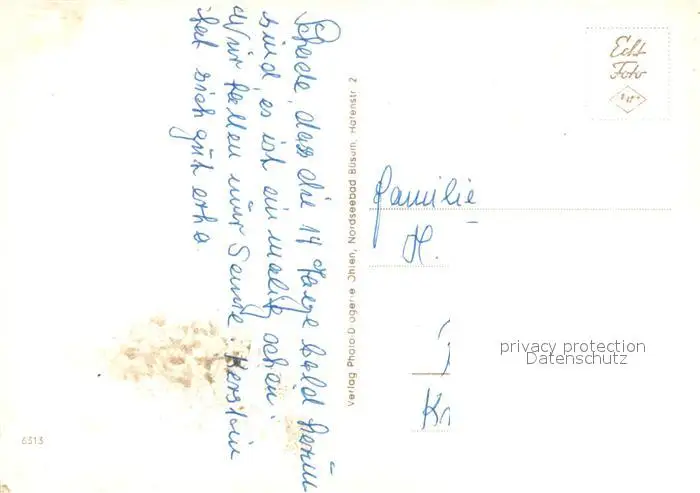 Schade, dass die 14 Taege bald herüm
sind, es ist ein malig schön.
Wir hatten nur Sonne Kerstin
hat sich gut erho
Verlag Photo-Drogerie Ohien, Nordseebad Büsum, Hafenstr. 2
Echt
Foto
Familie
H.
Kr
privacy protection
Datenschutz
6313